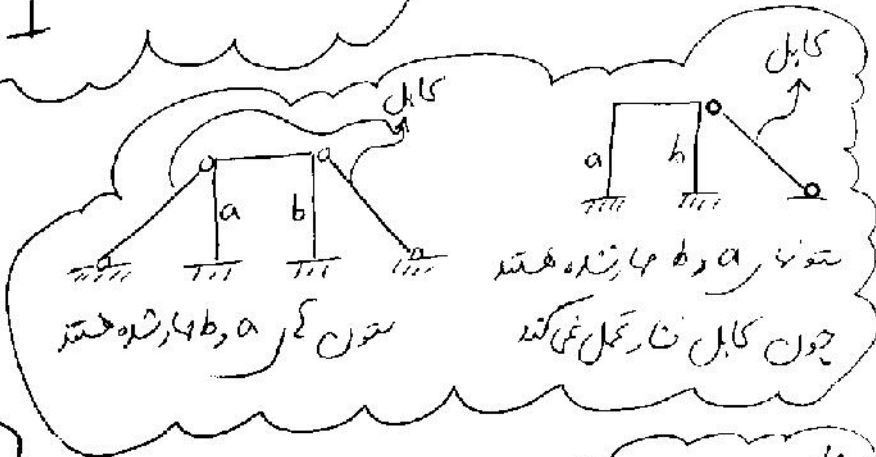 کابل
a
b
ستونهای a و b مهارنشده هستند
چون کابل فشار تحمل نمی کند
کابل
a
b
ستون های a و b مهارشده هستند